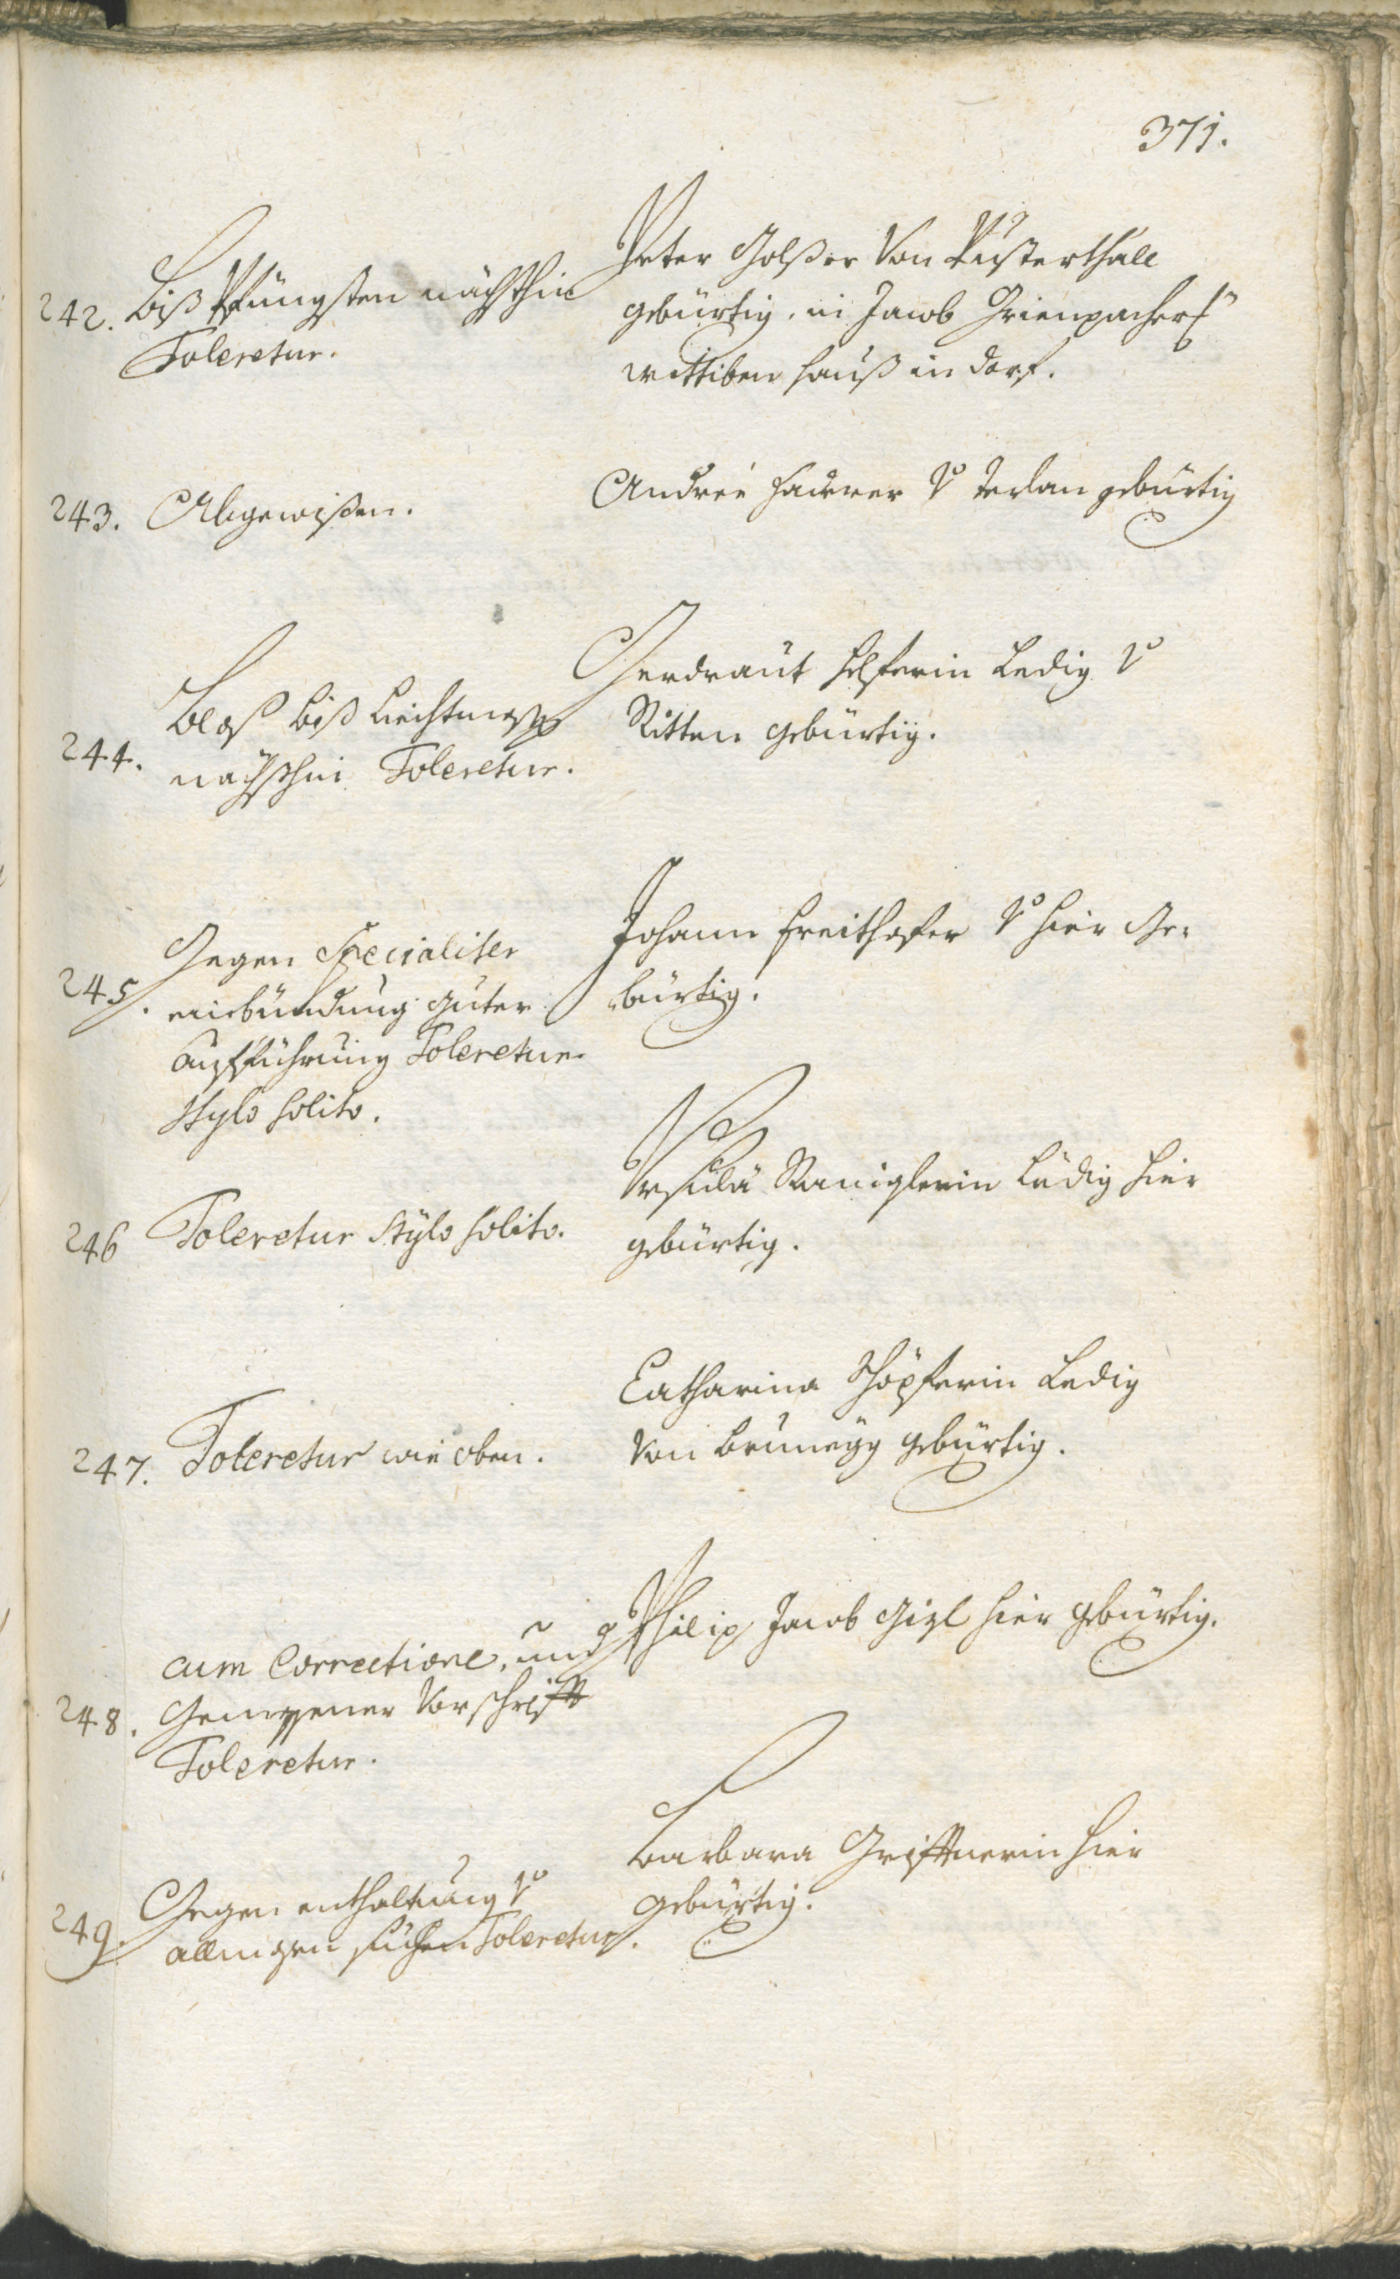 371.
242. Biß Pfüngsten nächsthin
Toleretur.
Peter Golßer Von Pusterthall
gebürtig, in Jacob Grienpacher
wittiben hauß in dorf.
243. Abgewißen.
Andree haderer V Terlan gebürtig
244. Bloß biß Liechtmeß
nächsthin Toleretur.
Gerdraut helferin Ledig V
Ritten gebürtig.
245. Gegen Specialiter
einbündung guter
aufführung Toleretur
stylo solito.
Johann freithofer V hier Ge-
bürtig.
246 Toleretur stylo solito.
Ursula Raniglerin Ledig hier
gebürtig.
247. Toleretur wie oben.
Catharina Schöpferin Ledig
Von brunegg gebürtig.
248. cum Correctione, und
Gemeßener Vorschrifft
Toleretur.
Philip Jacob Gizl hier gebürtig.
249. Gegen enthaltung V
allnigen Toleretur.
Barbara Grifftnerin hier
gebürtig.